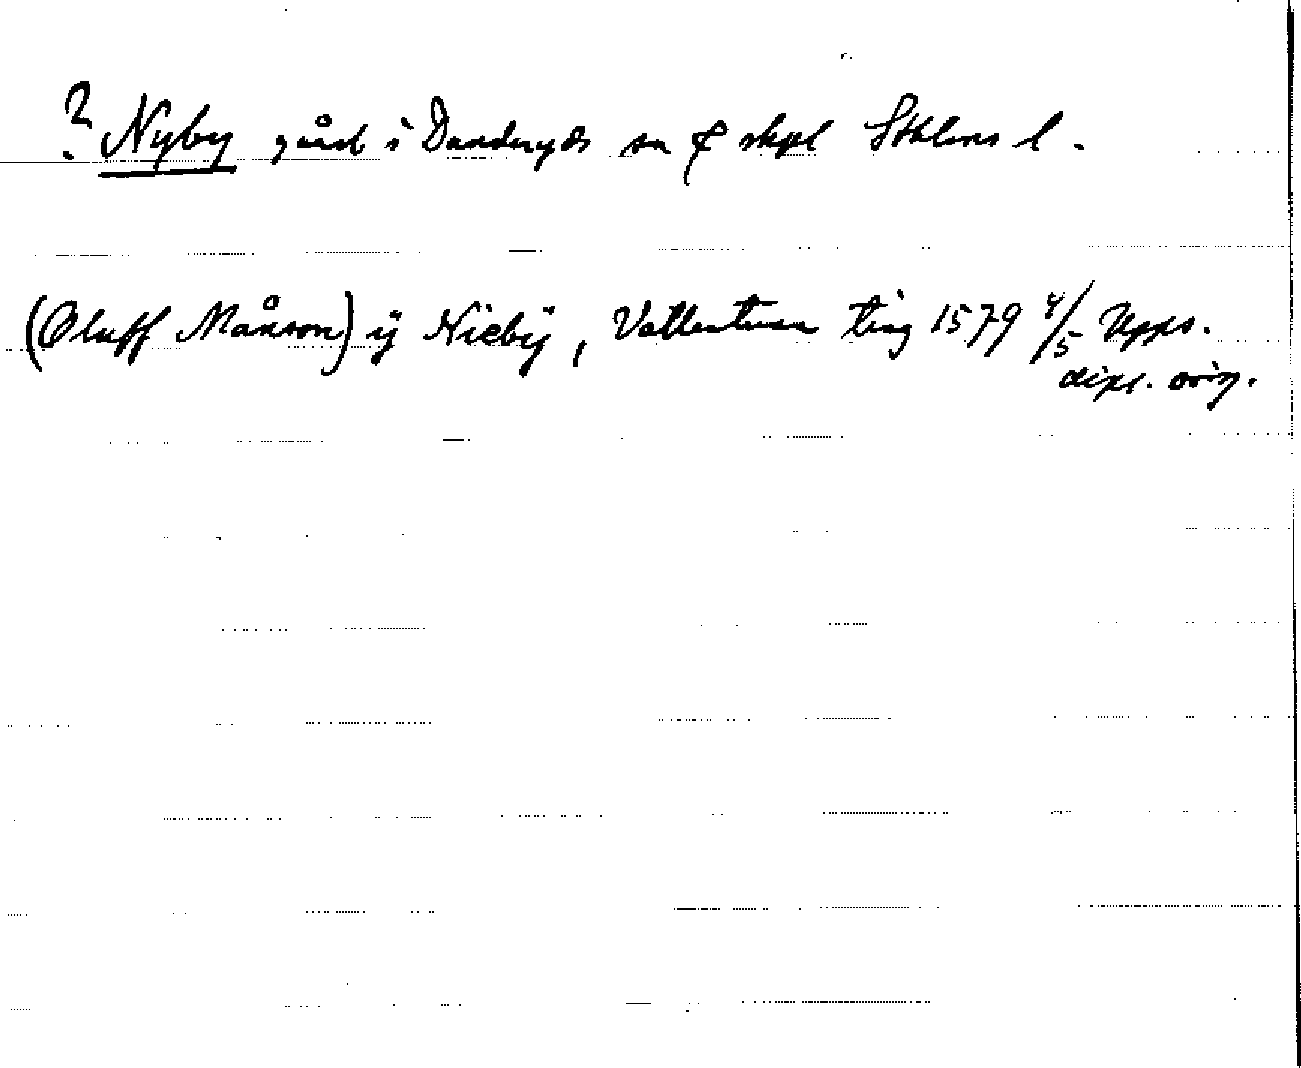 ? Nyby gård i Danderyds sn & skpl Sthlms l.
(Oluff Månson) ij Niebÿ, Vallentuna ting 1579 4/5 Upps.
dipl. orig.